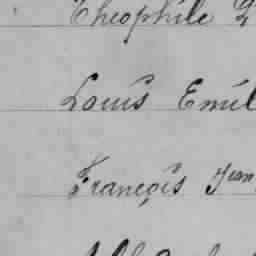 Theophile
Louis Emil
François Jean